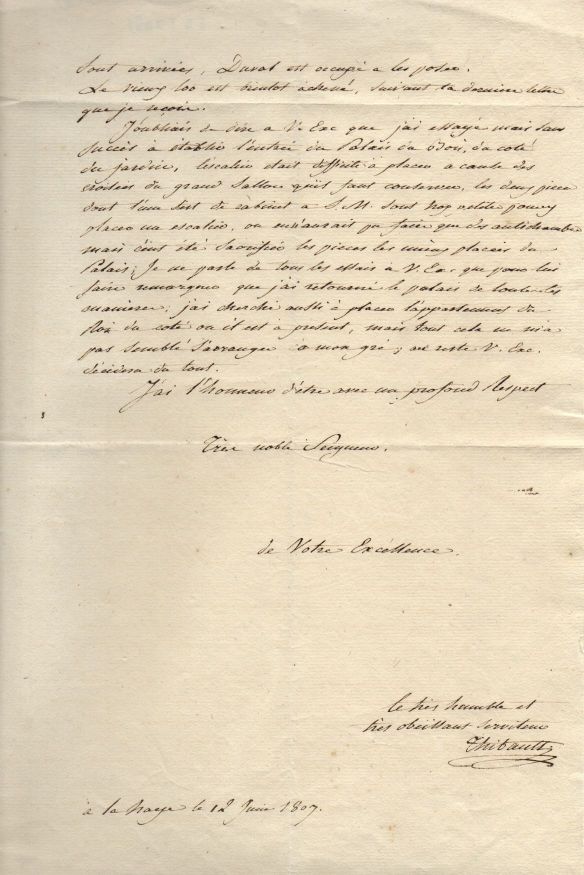 sont arrivées, Duval est occupé a les poser.
Le vieux loo est bientot achevé, suivant la derniere lettre
que je reçois.
J'oubliais de dire a V. Exc que j'ai essayé mais sans
succès à etablir l'entrée du Palais du bois, du coté
du jardin, l'escalier etait difficile à placer a cause des
croisées du grand Sallon qu'il faut conserver, les deux pieces
dont l'une sert de cabinet a S. M. sont trop petites pour y
placer un escalier, on en aurait pu faire que des antichambres
mais c'eut été sacrifier les pieces les mieux placées du
Palais; Je ne parle de tous les essais a V. Exc. que pour lui
faire remarquer que j'ai retourné le palais de toutes les
manieres; j'ai cherché aussi à placer l'appartement du
Roi du coté où il est a présent, mais tout cela ne m'a
pas semblé s'arranger a mon gré; au reste V. Exc.
décidera du tout.
J'ai l'honneur d'être avec un profond Respect
Très noble Seigneur.
de Votre Excellence.
le très humble et
très obéissant serviteur
Thibault
à la haye le 12 Juin 1807.